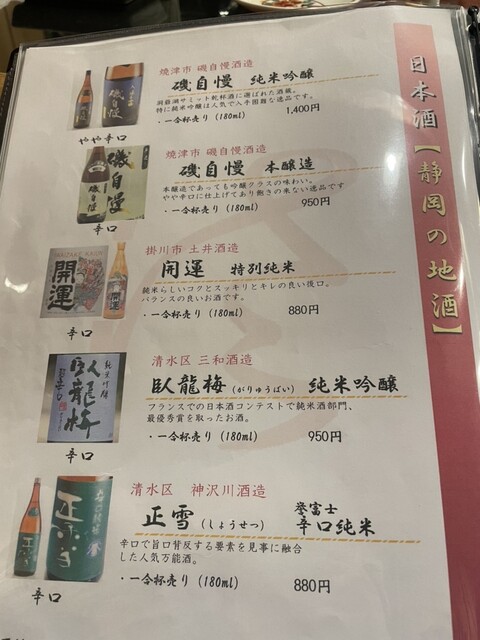 日本酒【静岡の地酒】
焼津市 磯自慢酒造
磯自慢 純米吟醸
洞爺湖サミット乾杯酒に選ばれた酒蔵。
特に純米吟醸は人気で入手困難な逸品です。
・一合杯売り(180ml) 1,400円
やや辛口
焼津市 磯自慢酒造
磯自慢 本醸造
本醸造であっても吟醸クラスの味わい。
やや辛口に仕上げてあり飽きの来ない逸品です
・一合杯売り(180ml) 950円
辛口
磯自慢
掛川市 土井酒造
開運 特別純米
純米らしいコクとスッキリとキレの良い後口。
バランスの良いお酒です。
・一合杯売り(180ml) 880円
開運
辛口
清水区 三和酒造
臥龍梅(がりゅうばい) 純米吟醸
フランスでの日本酒コンテストで純米酒部門、
最優秀賞を取ったお酒。
・一合杯売り(180ml) 950円
純米吟醸
臥龍梅
辛口
清水区 神沢川酒造
正雪(しょうせつ) 誉富士
辛口純米
辛口で旨口背反する要素を見事に融合
した人気万能酒。
・一合杯売り(180ml) 880円
正雪
辛口